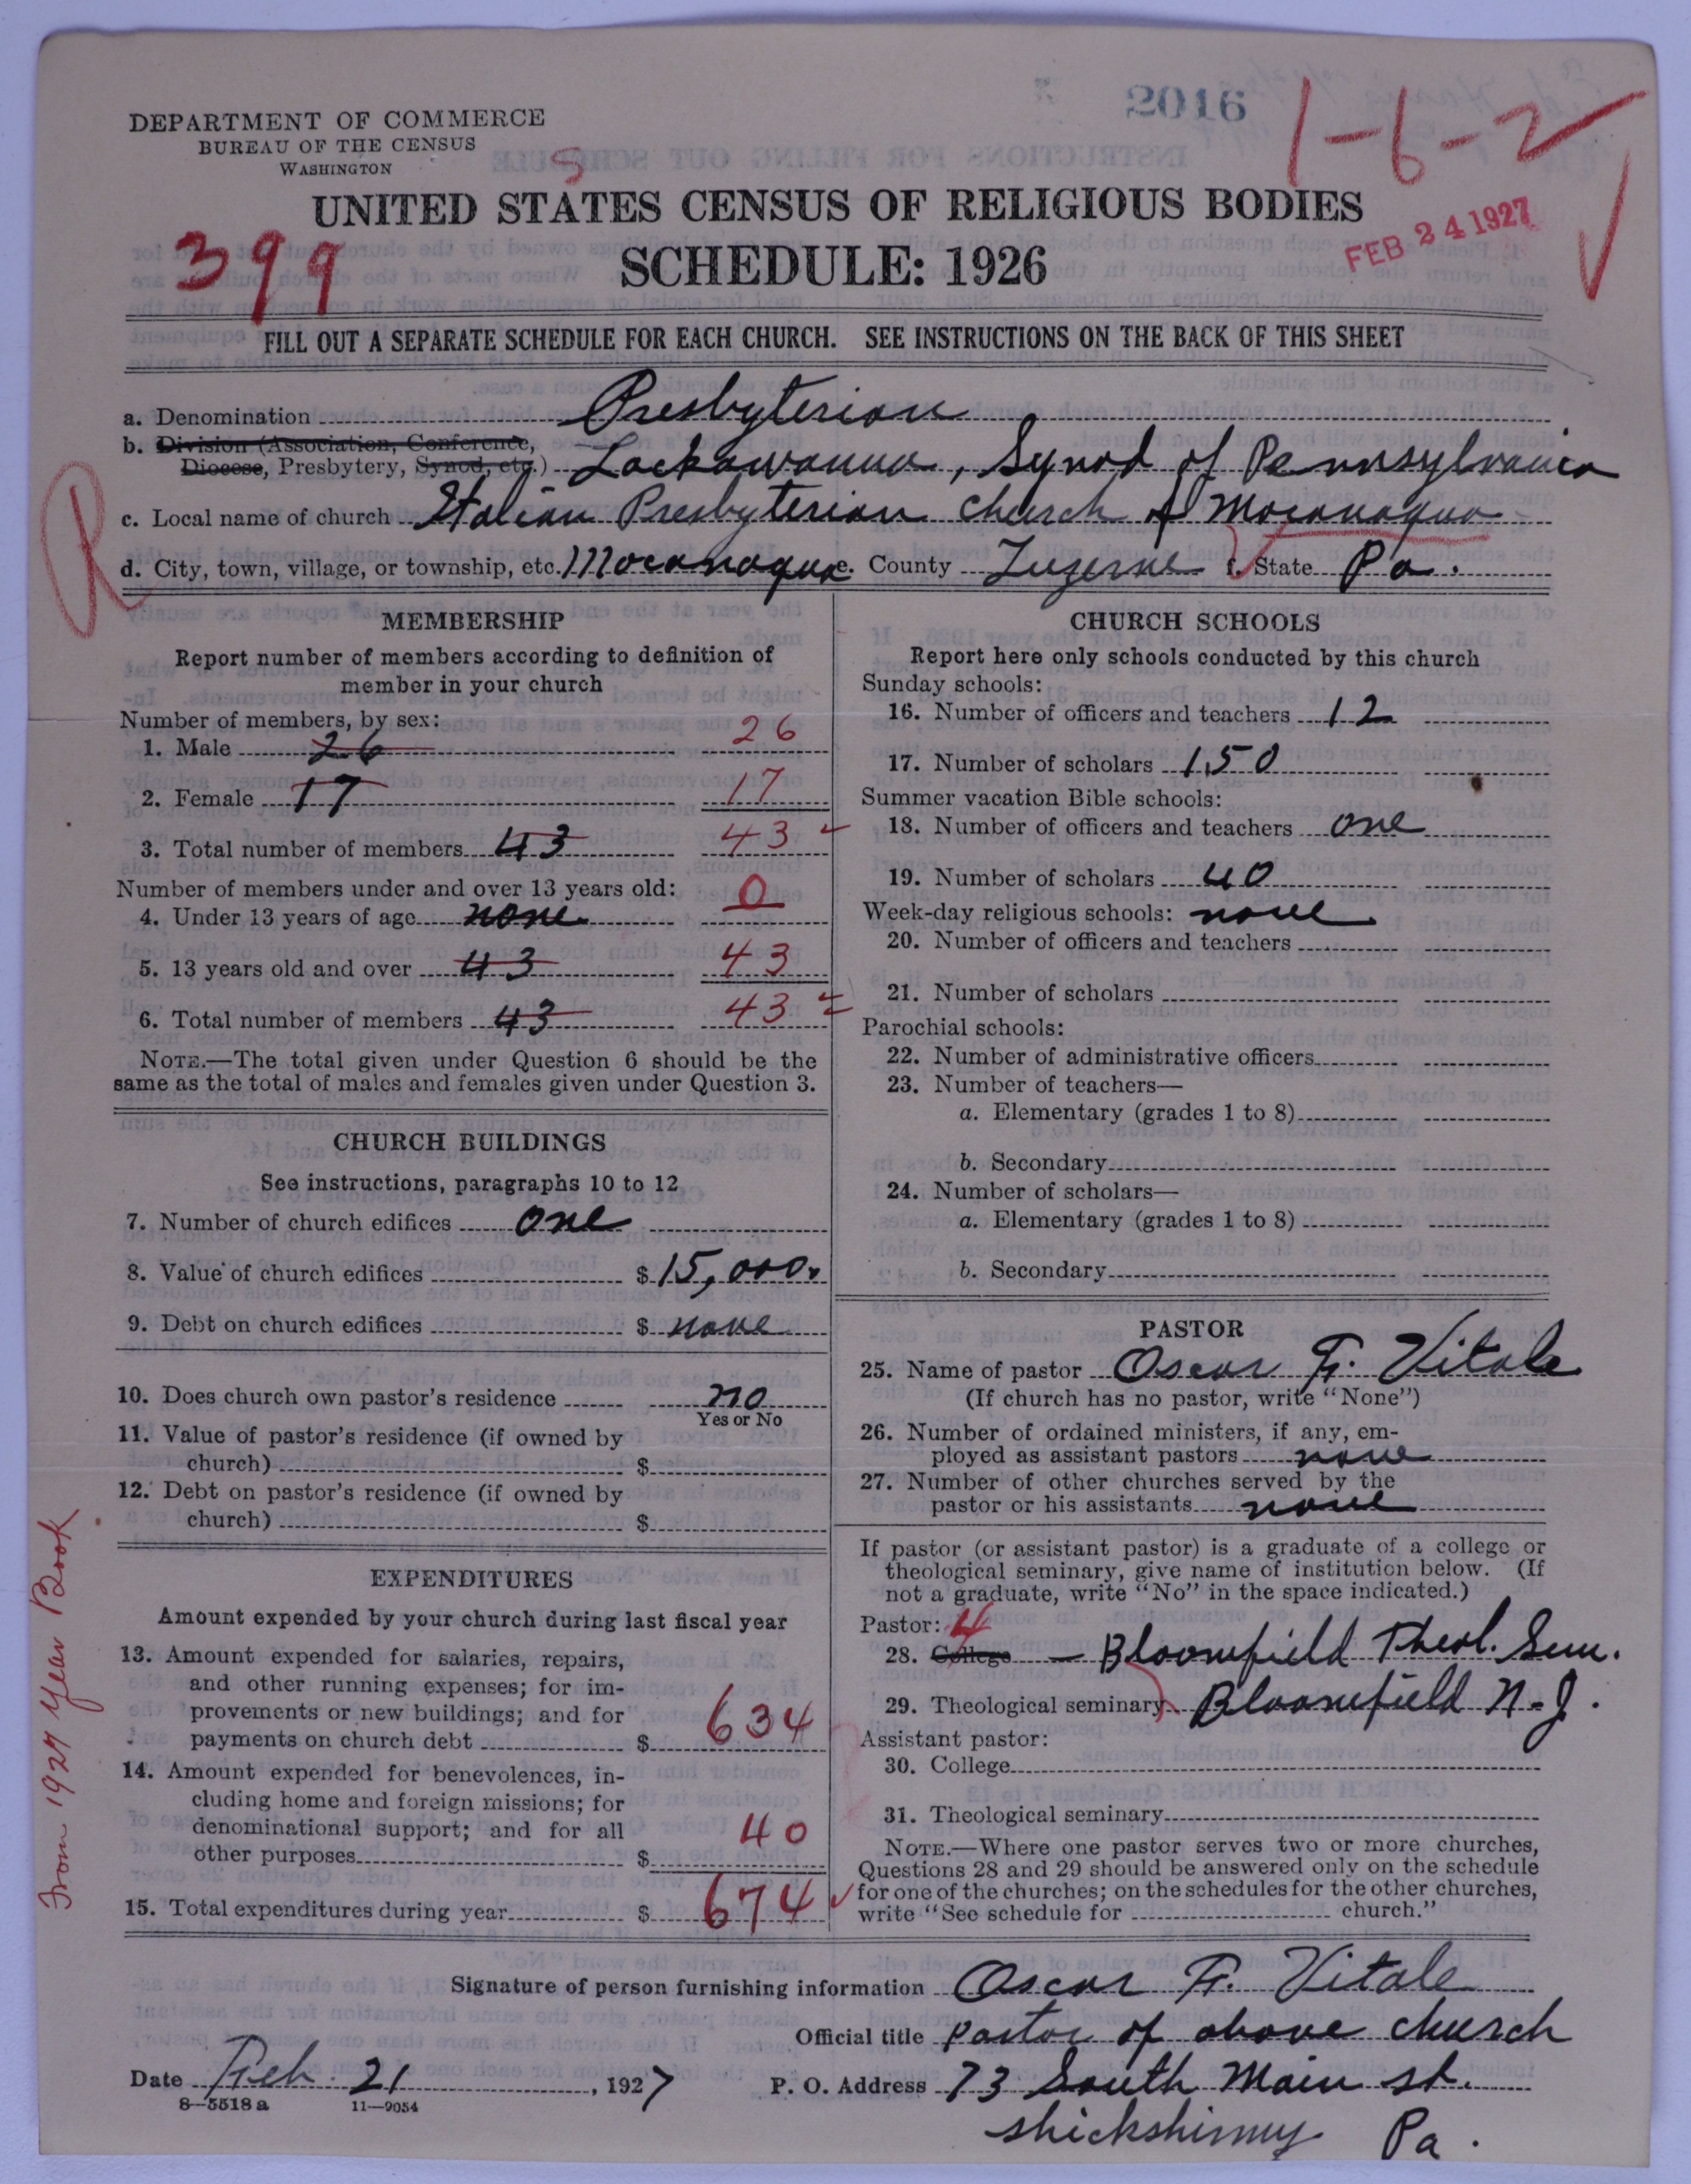 2016
1-6-2
DEPARTMENT OF COMMERCE
BUREAU OF THE CENSUS
WASHINGTON
S
UNITED STATES CENSUS OF RELIGIOUS BODIES
399
SCHEDULE: 1926
FEB 24 1927
FILL OUT A SEPARATE SCHEDULE FOR EACH CHURCH. SEE INSTRUCTIONS ON THE BACK OF THIS SHEET
a. Denomination Presbyterian
b. Division (Association, Conference,
Diocese, Presbytery, Synod, etc.) Lackawanna, Synod of Pennsylvania
c. Local name of church Italian Presbyterian Church of Mocanaqua
d. City, town, village, or township, etc. Mocanaqua e. County Luzerne f. State Pa.
R
MEMBERSHIP
Report number of members according to definition of
member in your church
Number of members, by sex:
1. Male 26 26
2. Female 17 17
3. Total number of members 43 43
Number of members under and over 13 years old:
4. Under 13 years of age none 0
5. 13 years old and over 43 43
6. Total number of members 43 43
NOTE.—The total given under Question 6 should be the
same as the total of males and females given under Question 3.
CHURCH BUILDINGS
See instructions, paragraphs 10 to 12
7. Number of church edifices one
8. Value of church edifices $ 15,000.
9. Debt on church edifices $ none
10. Does church own pastor's residence no
Yes or No
11. Value of pastor's residence (if owned by
church) $
12. Debt on pastor's residence (if owned by
church) $
EXPENDITURES
Amount expended by your church during last fiscal year
13. Amount expended for salaries, repairs,
and other running expenses; for im-
provements or new buildings; and for
payments on church debt $ 634
14. Amount expended for benevolences, in-
cluding home and foreign missions; for
denominational support; and for all
other purposes $ 40
15. Total expenditures during year $ 674
From 1927 Year Book
CHURCH SCHOOLS
Report here only schools conducted by this church
Sunday schools:
16. Number of officers and teachers 12
17. Number of scholars 150
Summer vacation Bible schools:
18. Number of officers and teachers one
19. Number of scholars 40
Week-day religious schools: none
20. Number of officers and teachers
21. Number of scholars
Parochial schools:
22. Number of administrative officers
23. Number of teachers—
a. Elementary (grades 1 to 8)
b. Secondary
24. Number of scholars—
a. Elementary (grades 1 to 8)
b. Secondary
PASTOR
25. Name of pastor Oscar F. Vitale
(If church has no pastor, write "None")
26. Number of ordained ministers, if any, em-
ployed as assistant pastors none
27. Number of other churches served by the
pastor or his assistants none
If pastor (or assistant pastor) is a graduate of a college or
theological seminary, give name of institution below. (If
not a graduate, write "No" in the space indicated.)
Pastor: 4
28. College — Bloomfield Theol. Sem.
29. Theological seminary Bloomfield N-J.
Assistant pastor:
30. College
31. Theological seminary
NOTE.—Where one pastor serves two or more churches,
Questions 28 and 29 should be answered only on the schedule
for one of the churches; on the schedules for the other churches,
write "See schedule for church."
Signature of person furnishing information Oscar F. Vitale
Official title pastor of above church
Date Feb. 21, 1927 P. O. Address 73 South Main st.
8—5518 a 11—9054
Shickshinny Pa.